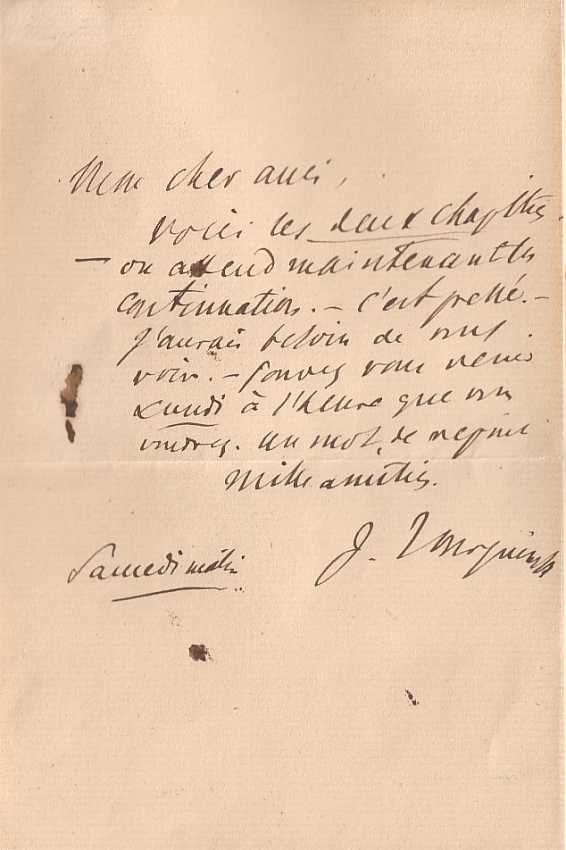 Mon cher ami,
voici les deux chapitres.
— on attend maintenant la
continuation. — C'est pressé. —
J'aurais besoin de vous
voir. — Pouvez vous venir
Lundi à l'heure que vous
voudrez. Un mot de réponse
Mille amitiés.
J. Tourguéneff
Samedi matin